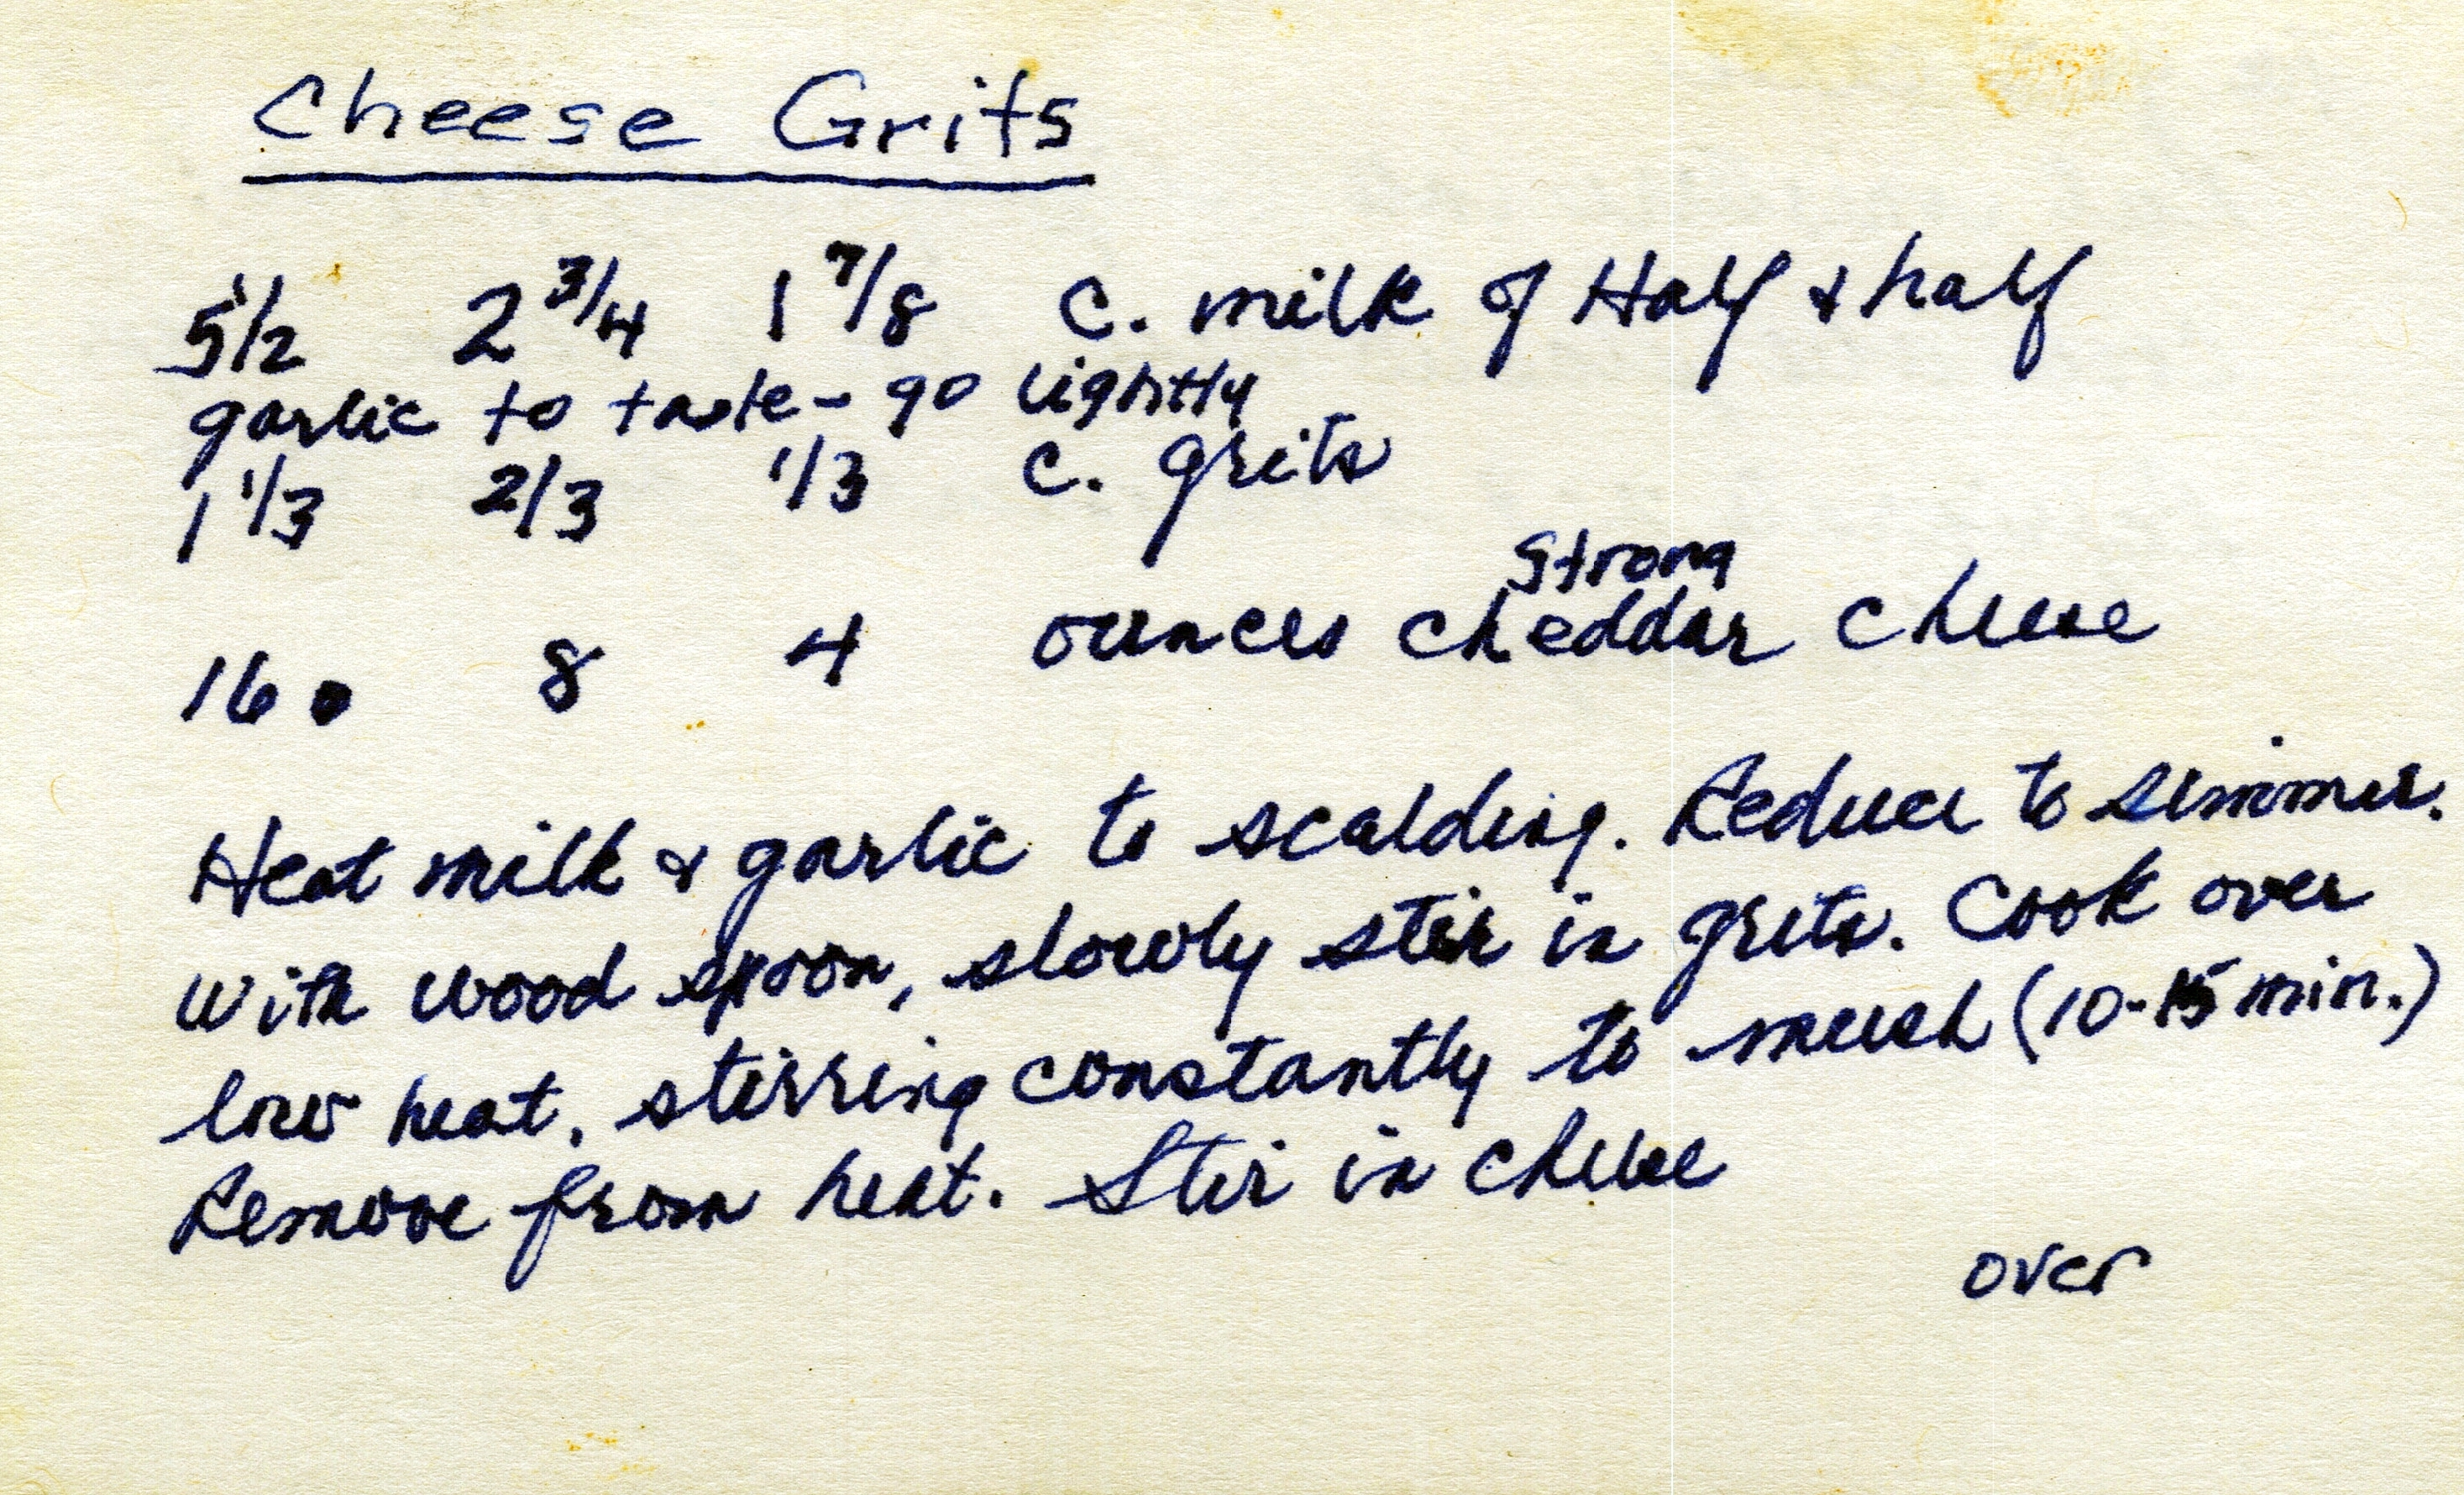 Cheese Grits
5 1/2 2 3/4 1 7/8 C. milk of Half & half
garlic to taste - go lightly
1 1/3 2/3 1/3 C. grits
Strong
16 8 4 ounces cheddar cheese
Heat milk & garlic to scalding. Reduce to simmer.
With wood spoon, slowly stir in grits. Cook over
low heat, stirring constantly to mush (10-15 min.)
Remove from heat. Stir in cheese
over